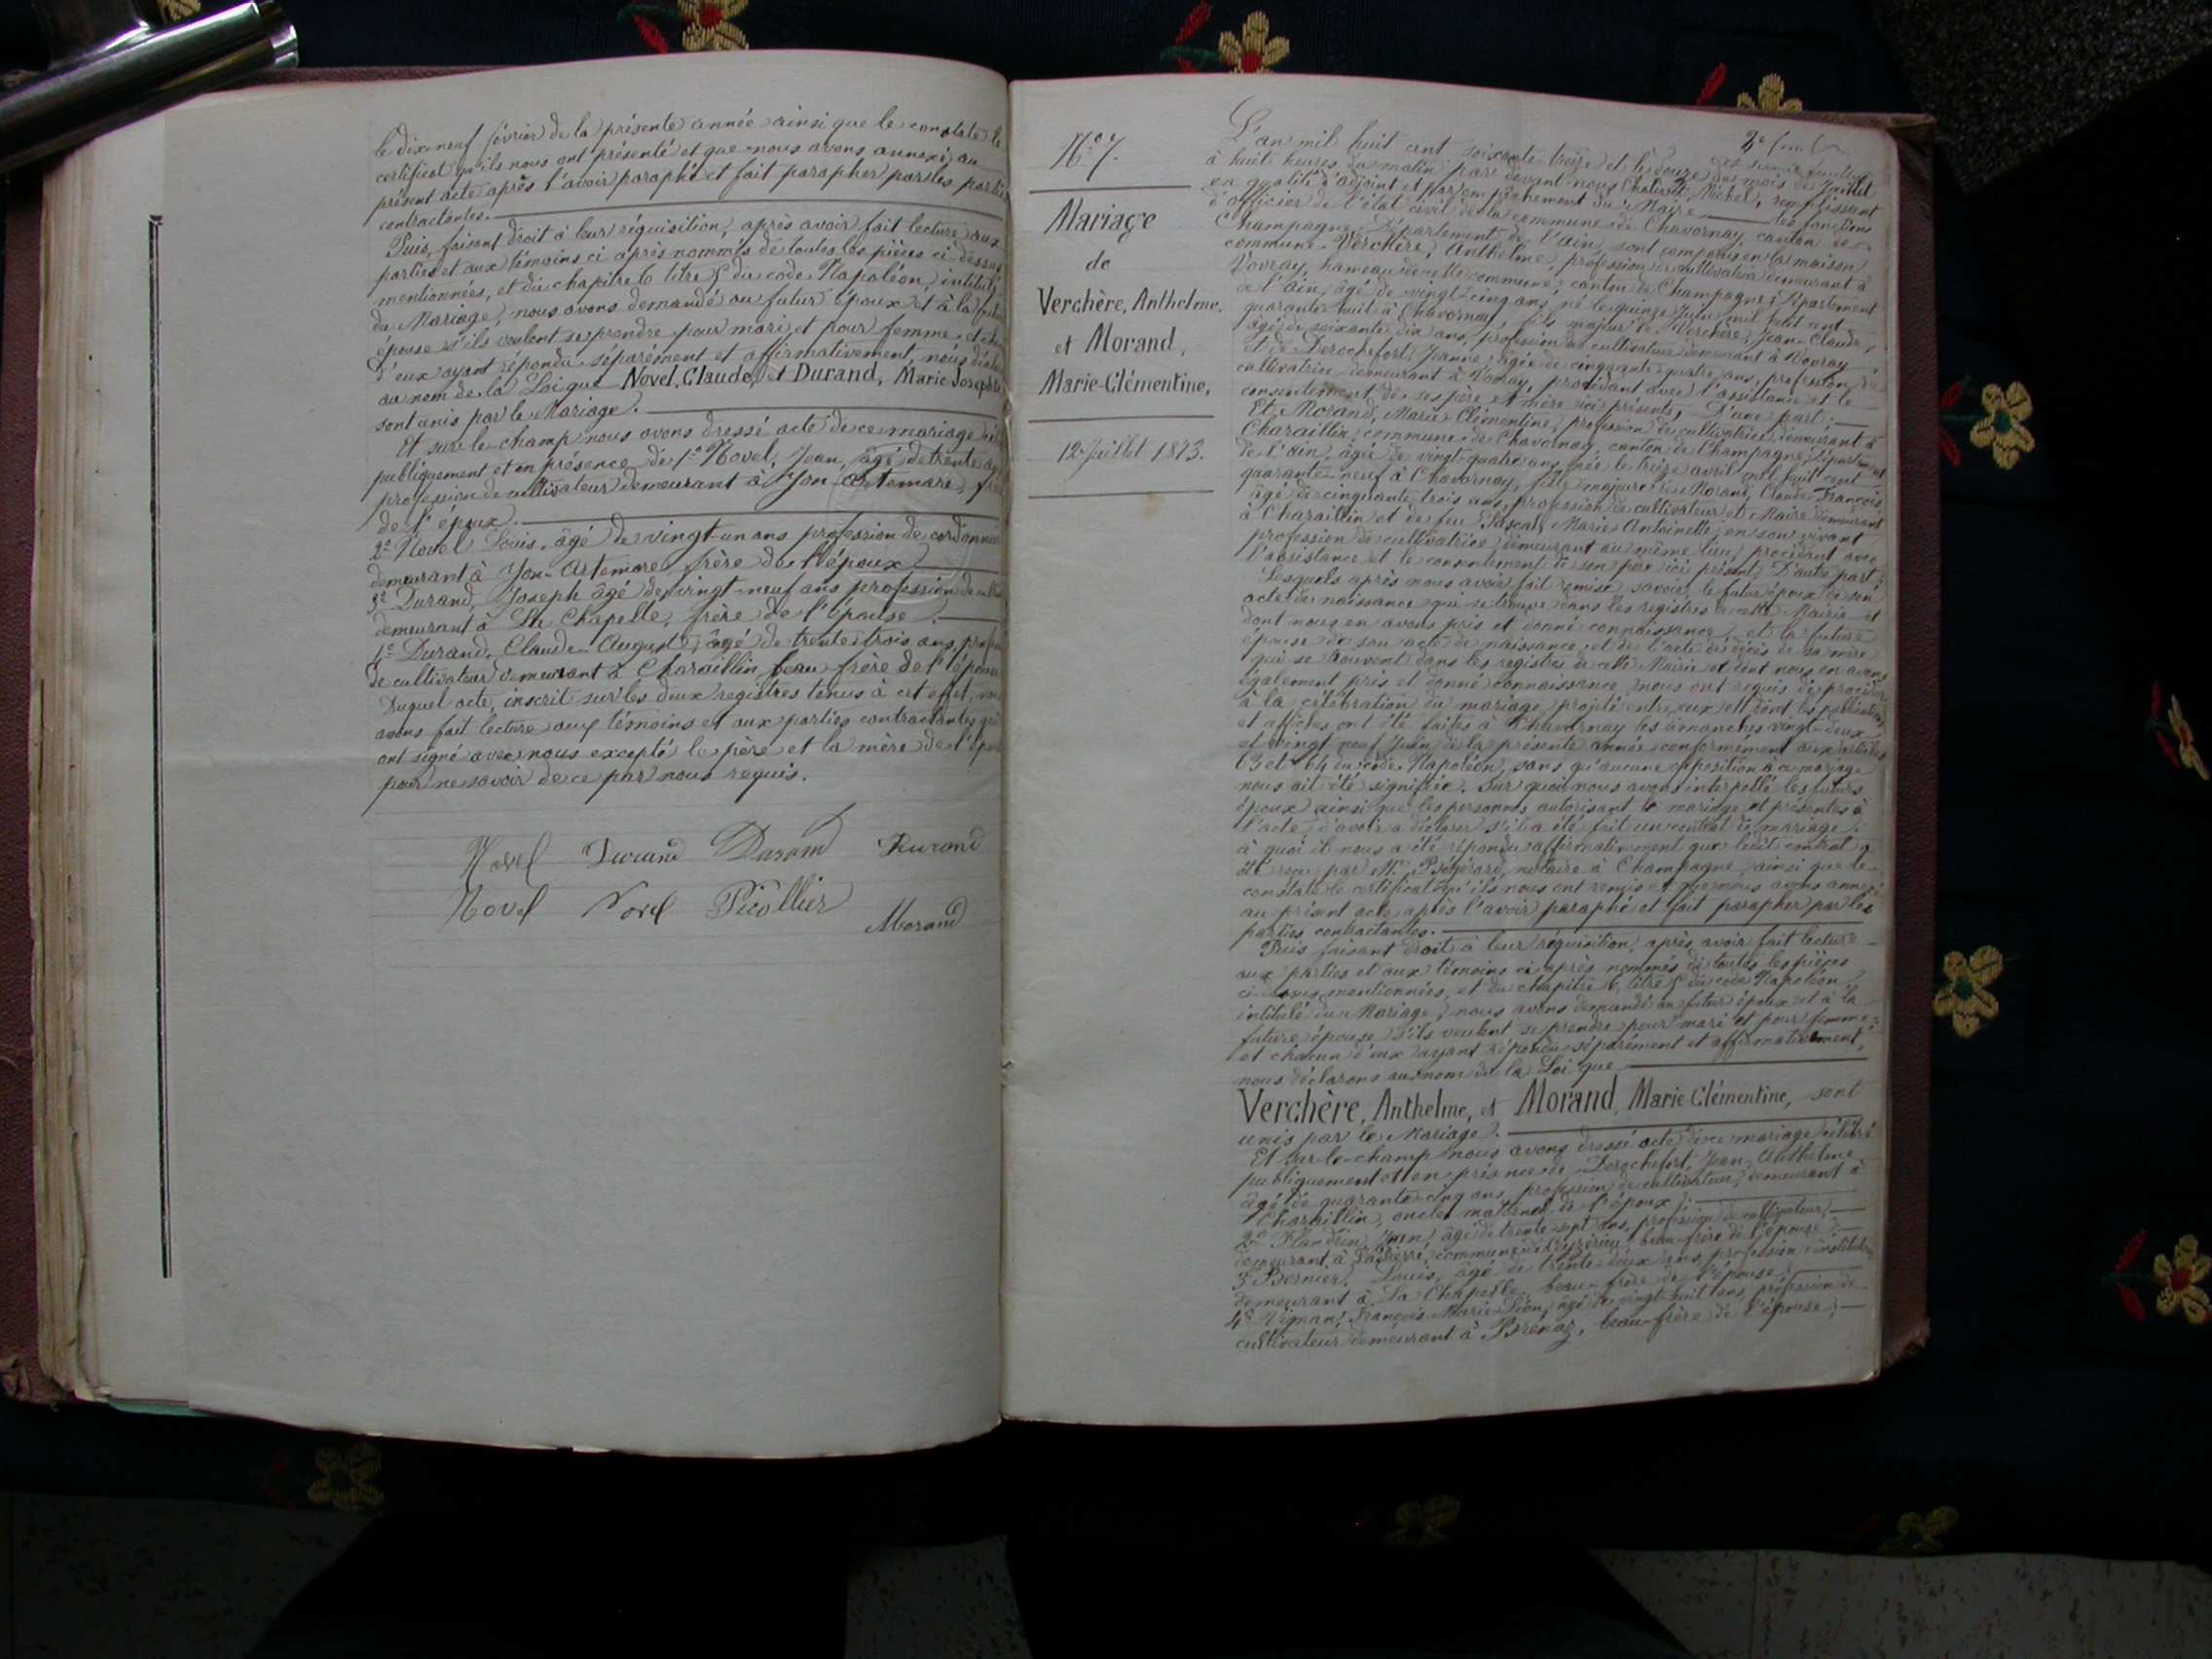 le dix-neuf février de la présente année ainsi que le constate le
certificat qu'ils nous ont présenté et que nous avons annexé au
présent acte après l'avoir paraphé et fait parapher par les parties
contractantes.
Puis, faisant droit à leur réquisition, après avoir fait lecture aux
parties et aux témoins ci après nommés de toutes les pièces ci-dessus
mentionnées, et du chapitre 6 titre 5 du code Napoléon, intitulé
du Mariage, nous avons demandé au futur époux et à la
épouse s'ils veulent se prendre pour mari et pour femme, et
d'eux ayant répondu séparément et affirmativement, nous
au nom de la Loi que Novel, Claude, et Durand, Marie Josephte
sont unis par le Mariage.
Et sur-le-champ nous avons dressé acte de ce mariage
publiquement et en présence de 1º Novel, Jean, âgé de trente
profession de cultivateur demeurant à Yon-Artemare,
de l'époux.
2º Novel Louis, âgé de vingt-un ans profession de cordonnier
demeurant à Yon-Artemare frère de l'époux
3º Durand, Joseph âgé de vingt-neuf ans profession de
demeurant à La Chapelle, frère de l'épouse.
Durand, Claude Auguste, âgé de trente-trois ans,
de cultivateur demeurant à Charaillin beau frère de l'épouse
Duquel acte, inscrit sur les deux registres tenus à cet effet, nous
avons fait lecture aux témoins et aux parties contractantes qui
ont signé avec nous excepté le père et la mère de l'
pour ne savoir de ce par nous requis.
Novel Durand Durand Durand
Novel Novel Picollier
Morand
Nº 7.
Mariage
de
Verchère, Anthelme,
et Morand,
Marie-Clémentine,
12 Juillet 1873.
L'an mil huit cent soixante-treize et le douze du mois de Juillet
à huit heures du matin par devant nous Michel, remplissant
en qualité d'adjoint et par empêchement du Maire les fonctions
d'officier de l'état civil de la commune de Chavornay, canton de
Champagne, Département de l'Ain, sont comparus en la maison
commune, Verchère, Anthelme, profession de cultivateur demeurant à
Vovray, hameau de cette commune, canton de Champagne, Département
de l'Ain, âgé de vingt-cinq ans, né le quinze Juin mil huit cent
quarante-huit à Chavornay, fils majeur de Verchère, Jean-Claude,
âgé de soixante-dix ans, profession de cultivateur demeurant à Vovray
et de Derochefort, Jeanne, âgée de cinquante-quatre ans, profession de
cultivatrice demeurant à Vovray, procédant avec l'assistance et le
consentement de ses père et mère ici présents, D'une part;
Et Morand, Marie Clémentine, profession de cultivatrice, demeurant à
Charaillin, commune de Chavornay, canton de Champagne, Département
de l'Ain, âgée de vingt-quatre ans, née le treize avril mil huit cent
quarante-neuf à Chavornay, fille majeure de Morand, Claude François,
âgé de cinquante-trois ans, profession de cultivateur et Maire demeurant
à Charaillin et de feu Pascal, Marie-Antoinette, en son vivant
profession de cultivatrice, demeurant au même lieu, procédant avec
l'assistance et le consentement de son père ici présent, D'autre part;
Lesquels après nous avoir fait remise, savoir, le futur époux de son
acte de naissance qui se trouve dans les registres de cette Mairie et
dont nous en avons pris et donné connaissance, et la future
épouse de son acte de naissance, et de l'acte de décès de sa mère
qui se trouvent dans les registres de cette Mairie et dont nous en avons
également pris et donné connaissance, nous ont requis de procéder
à la célébration du mariage projeté entre eux et dont les publications
et affiches ont été faites à Chavornay les dimanches vingt-deux
et vingt-neuf Juin de la présente année conformément aux articles
63 et 64 du code Napoléon, sans qu'aucune opposition à ce mariage
nous ait été signifiée. Sur quoi nous avons interpellé les futurs
époux ainsi que les personnes autorisant le mariage et présentes à
l'acte, d'avoir à déclarer s'il a été fait un contrat de mariage,
à quoi il nous a été répondu affirmativement que ledit contrat a
été reçu par Me notaire à Champagne, ainsi que le
constate le certificat qu'ils nous ont remis et que nous avons annexé
au présent acte après l'avoir paraphé et fait parapher par les
parties contractantes.
Puis faisant droit à leur réquisition, après avoir fait lecture
aux parties et aux témoins ci-après nommés de toutes les pièces
ci-dessus mentionnées, et du chapitre 6, titre 5 du code Napoléon,
intitulé du Mariage, nous avons demandé au futur époux et à la
future épouse s'ils veulent se prendre pour mari et pour femme;
et chacun d'eux ayant répondu séparément et affirmativement,
nous déclarons au nom de la Loi que
Verchère, Anthelme, et Morand, Marie Clémentine, sont
unis par le Mariage.
Et sur-le-champ nous avons dressé acte de ce mariage célébré
publiquement et en présence de Derochefort, Jean-Anthelme
âgé de quarante-cinq ans, profession de cultivateur, demeurant à
Charaillin, oncle maternel de l'époux;
2º Jean, âgé de trente-sept ans, profession de cultivateur,
demeurant à commune de beau-frère de l'épouse;
3º Bernier, Louis, âgé de trente-deux ans, profession d'instituteur
demeurant à La Chapelle, beau-frère de l'épouse;
4º François-Marie-Léon, âgé de vingt-huit ans, profession de
cultivateur demeurant à Brénaz, beau-frère de l'épouse;